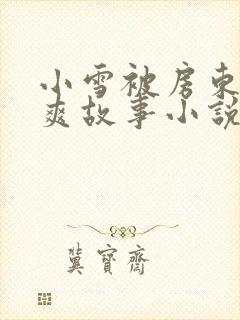 小雪被房东
爽故事小说
冀宝斋